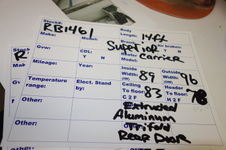 Stock#: Body Length:
RB1461 14ft
Make: Model:
Superior
Gvw: CDL: Y N Model: Carrier
Mileage: Year: Inside Width: 89 Outside Width: 96
Temperature range: Elect. Stand by: Ceiling To floor: 83 Head To floor: 78
Y N H 2 F H 2 F
Other: Extruded
Aluminum
Other: Trifold
Rear Door